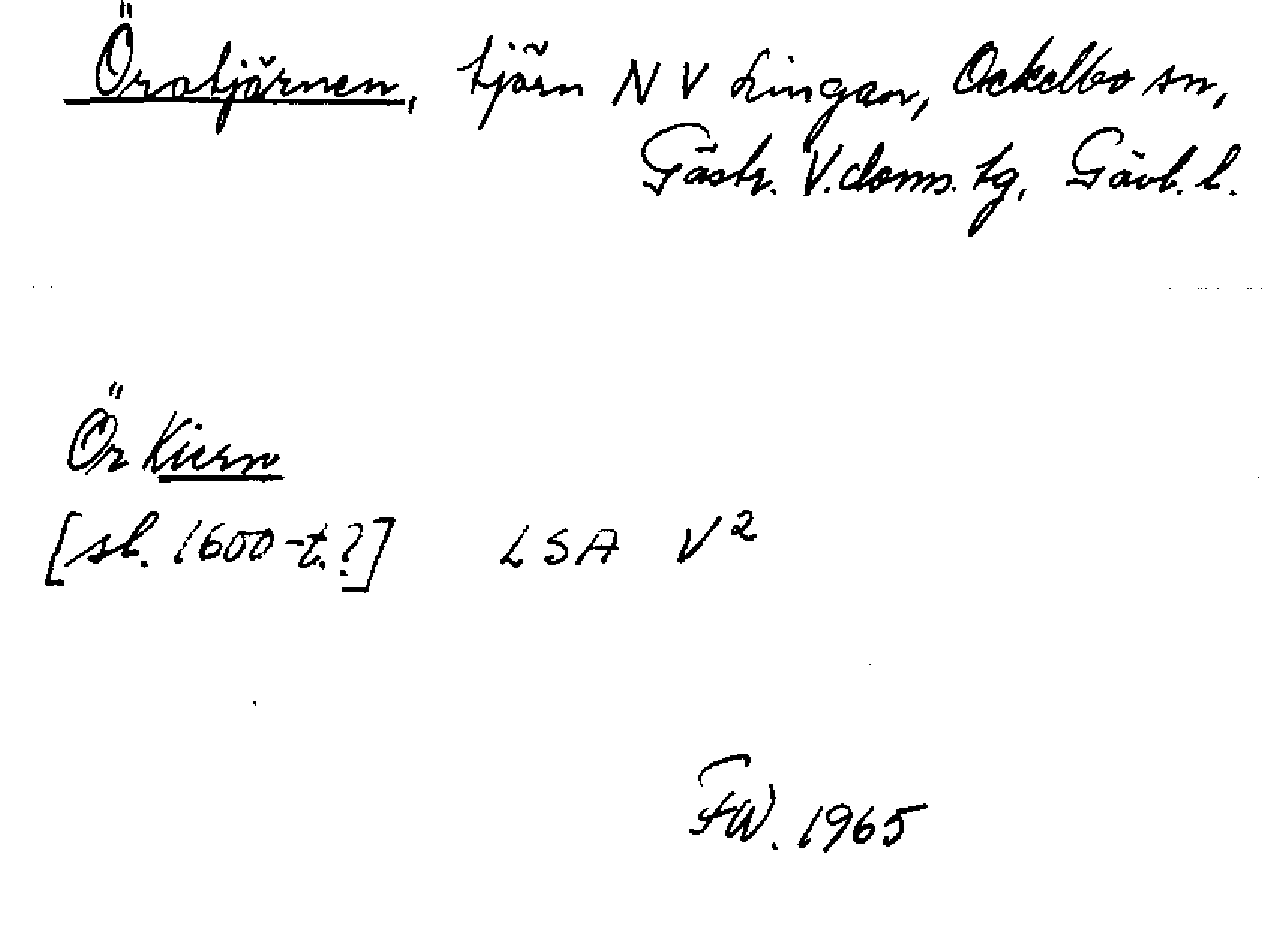 Öratjärnen, tjärn NV Lingan, Ockelbo sn,
Gästr. V. doms. tg, Gävl. l.
Ör Kiern
[sl. 1600-t.?] LSA V²
FW. 1965